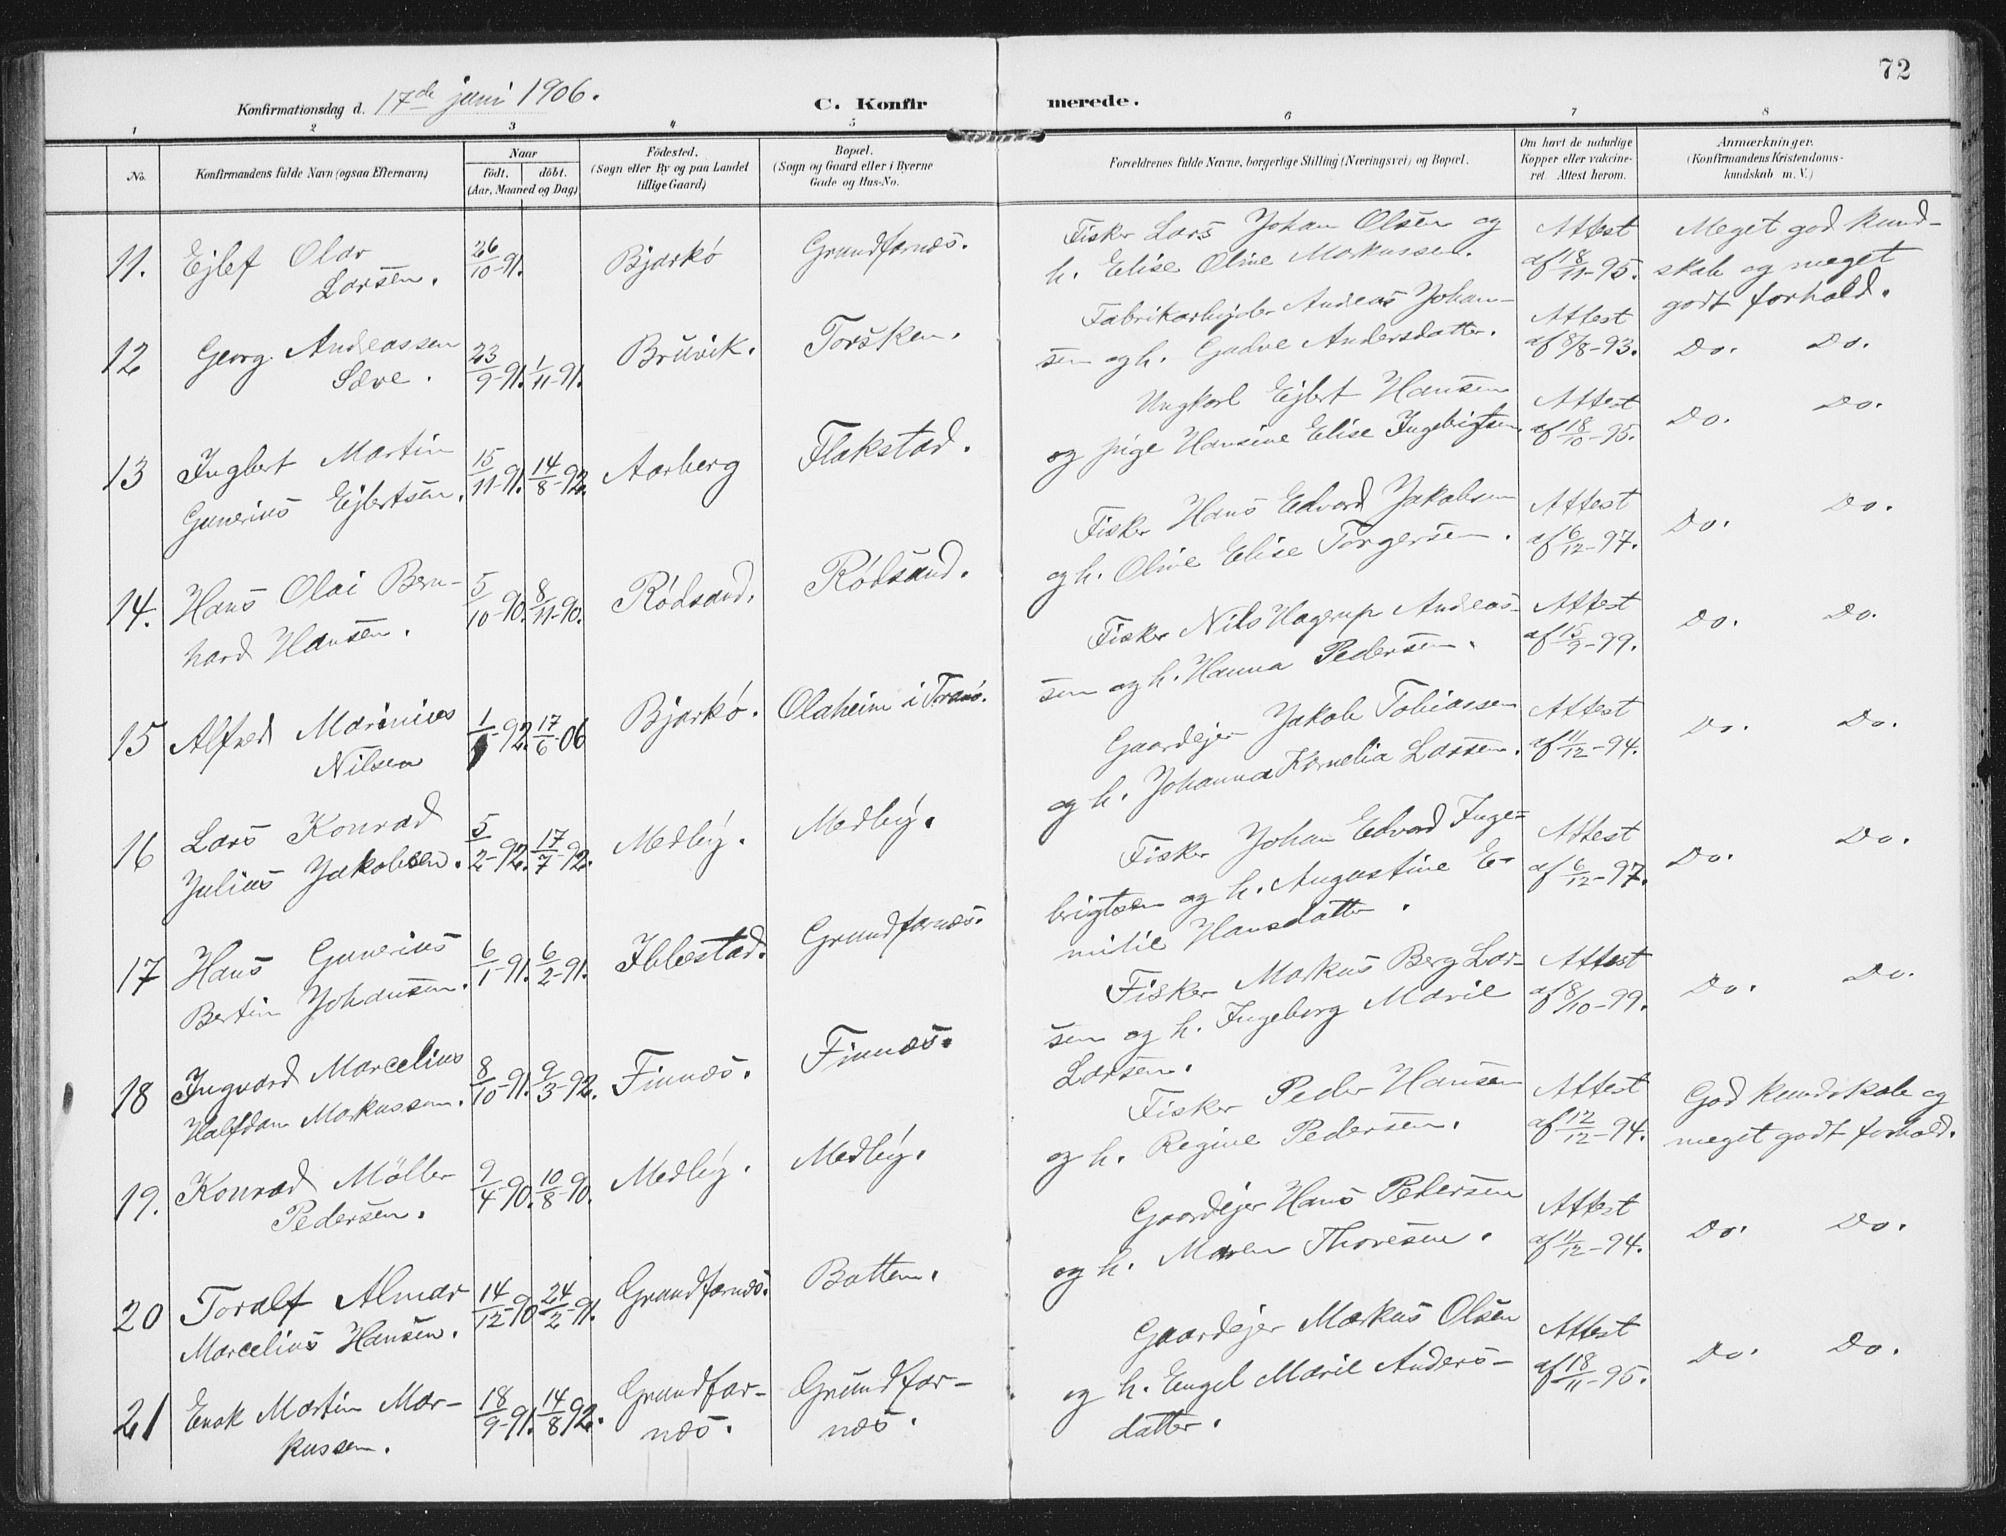 72
Konfirmationsdag d. 17de juni 1906.
C. Konfirmerede.
1 2 3 4 5 6 7 8
No.
Konfirmandens fulde Navn (ogsaa Efternavn)
Naar
födt. döbt.
(Aar, Maaned og Dag)
Födested.
(Sogn eller By og paa Landet
tillige Gaard)
Bopæl.
(Sogn og Gaard eller i Byerne
Gade og Hus-No.
Forældrenes fulde Navne, borgerlige Stilling (Næringsvei) og Bopæl.
Om havt de naturlige
Kopper eller vakcine-
ret. Attest herom.
Anmærkninger.
(Konfirmandens Kristendoms-
kundskab m. V.)
11. Ejlef Olav Larsen. 26/10-91. Bjarkö Grundfarnæs.
Fisker Lars Johan Olsen og
h. Elise Oline Markussen.
Attest af 18/11-95.
Meget god kund-
skab og meget
godt forhold.
12 Georg Andreassen Sæve. 23/9-91. 1/11-91. Bruvik. Torsken.
Fabrikarbejder Andreas Johan-
sen og h. Andersdatter.
Attest af 8/8-93. Do. Do.
13 Ingbert Martin
Gunerius Ejbertsen. 15/11-91. 14/8-92. Aarberg Flakstad.
Ungkarl Ejbert Hansen
og pige Hansine Elise Ingebrigtsen.
Attest af 18/10-95. Do. Do.
14. Hans Olai Bern-
hard Hansen. 5/10-90. 8/11-90. Rödsand. Rödsand.
Fisker Hans Edvard Jakobsen
og h. Oline Elise Torgersen.
Attest af 6/12-97. Do. Do.
15 Alfred Marinius
Nilsen 1/1-92. 17/6-06 Bjarkö. Olaheim i Tranö.
Fisker Nils Hagerup Andreas-
sen og h. Hanna Pedersen.
Attest af 15/9-99. Do. Do.
16 Lars Konrad
Julius Jakobsen. 5/2-92. 17/7-92. Medby. Medby.
Gaardejer Jakob Tobiassen
og h. Johanna Kornelia Larsen.
Attest af 11/12-94. Do. Do.
17 Hans Gunerius
Bertin Johansen. 6/1-91. 6/2-91. Ibbestad. Grundfarnæs.
Fisker Johan Edvard Inge-
brigtsen og h. Augustine E-
milie Hansdatter.
Attest af 6/12-97. Do. Do.
18 Ingvard Marcelius
Halfdan Markussen. 8/10-91. 9/3-92. Finnæs. Finnæs.
Fisker Markus Berg Lar-
sen og h. Ingeborg Marie
Larsen.
Attest af 8/10-99. Do. Do.
19. Konrad Möller
Pedersen. 9/4-90. 10/8-90. Medby. Medby.
Fisker Peder Hansen
og h. Regine Pedersen.
Attest af 12/12-94.
God kundskab og
meget godt forhold.
20 Toralf Almar
Marcelius Hansen. 14/12-90 24/2-91. Grundfarnæs. Botten.
Gaardejer Hans Pedersen
og h. Maren Thoresen.
Attest af 11/12-94. Do. Do.
21 Enok Martin Mar-
kussen. 18/9-91. 14/8 92. Grundfar-
næs. Grundfar-
næs.
Gaardejer Markus Olsen
og h. Engel Marie Anders-
datter.
Attest af 18/11-95. Do. Do.